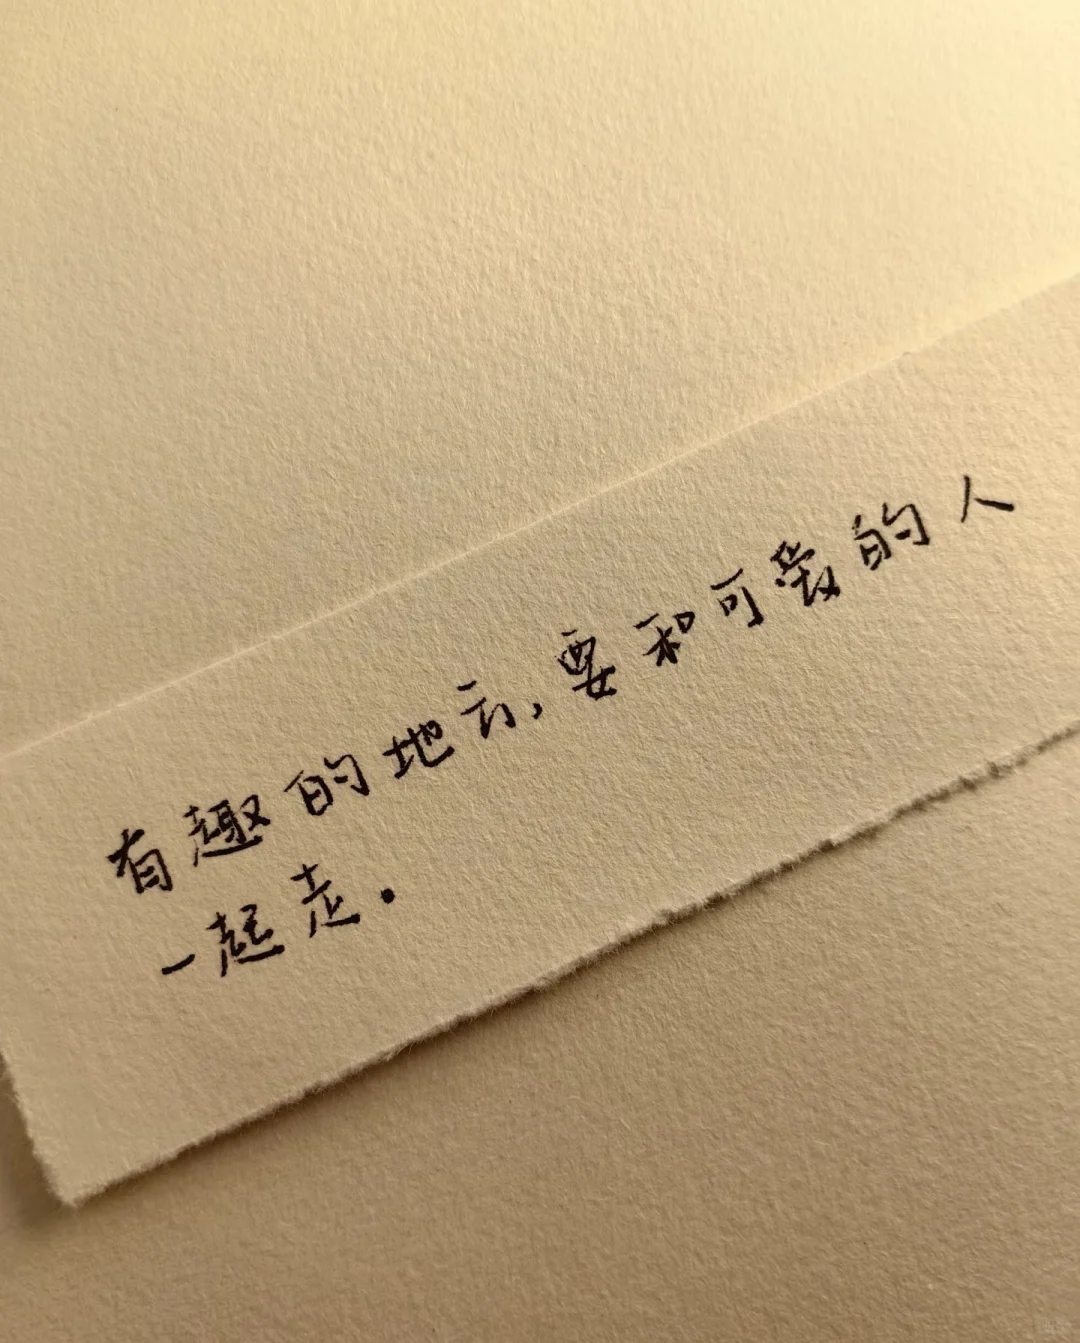 有趣的地方,要和可爱的人
一起走.